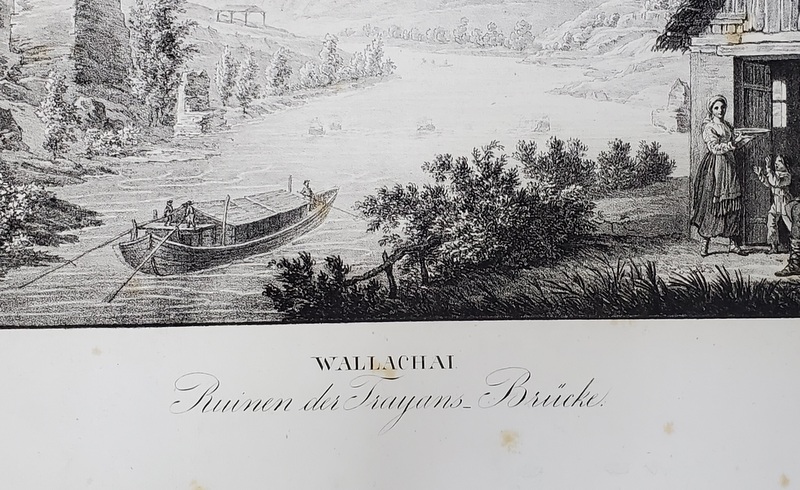 WALLACHAI
Ruinen der Trayans-Brücke.